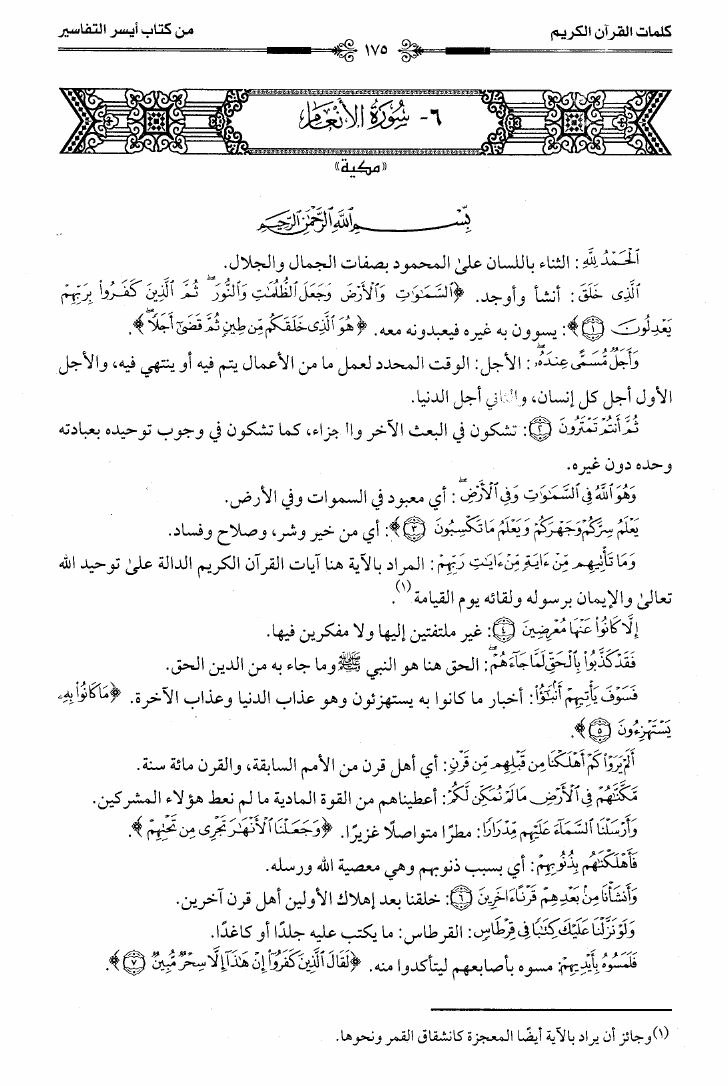 كلمات القرآن الكريم
من كتاب أيسر التفاسير
١٧٥
٦- سُورَةُ الأَنْعَامِ
«مكية»
بِسْمِ اللَّهِ الرَّحْمَٰنِ الرَّحِيمِ
ٱلْحَمْدُ لِلَّهِ: الثناء باللسان علىٰ المحمود بصفات الجمال والجلال.
ٱلَّذِى خَلَقَ: أنشأ وأوجد. ﴿ٱلسَّمَٰوَٰتِ وَٱلْأَرْضَ وَجَعَلَ ٱلظُّلُمَٰتِ وَٱلنُّورَ ۖ ثُمَّ ٱلَّذِينَ كَفَرُوا۟ بِرَبِّهِمْ
يَعْدِلُونَ ١﴾: يسوون به غيره فيعبدونه معه. ﴿هُوَ ٱلَّذِى خَلَقَكُم مِّن طِينٍ ثُمَّ قَضَىٰٓ أَجَلًا ۖ﴾.
وَأَجَلٌ مُّسَمًّى عِندَهُۥ ۖ: الأجل: الوقت المحدد لعمل ما من الأعمال يتم فيه أو ينتهي فيه، والأجل
الأول أجل كل إنسان، والثاني أجل الدنيا.
ثُمَّ أَنتُمْ تَمْتَرُونَ ٢: تشكون في البعث الآخر والجزاء، كما تشكون في وجوب توحيده بعبادته
وحده دون غيره.
وَهُوَ ٱللَّهُ فِى ٱلسَّمَٰوَٰتِ وَفِى ٱلْأَرْضِ ۖ: أي معبود في السموات وفي الأرض.
يَعْلَمُ سِرَّكُمْ وَجَهْرَكُمْ وَيَعْلَمُ مَا تَكْسِبُونَ ٣﴾: أي من خير وشر، وصلاح وفساد.
وَمَا تَأْتِيهِم مِّنْ ءَايَةٍ مِّنْ ءَايَٰتِ رَبِّهِمْ: المراد بالآية هنا آيات القرآن الكريم الدالة علىٰ توحيد الله
تعالىٰ والإيمان برسوله ولقائه يوم القيامة(١).
إِلَّا كَانُوا۟ عَنْهَا مُعْرِضِينَ ٤: غير ملتفتين إليها ولا مفكرين فيها.
فَقَدْ كَذَّبُوا۟ بِٱلْحَقِّ لَمَّا جَآءَهُمْ ۖ: الحق هنا هو النبي ﷺ وما جاء به من الدين الحق.
فَسَوْفَ يَأْتِيهِمْ أَنۢبَٰٓؤُا۟: أخبار ما كانوا به يستهزئون وهو عذاب الدنيا وعذاب الآخرة. ﴿مَا كَانُوا۟ بِهِۦ
يَسْتَهْزِءُونَ ٥﴾.
أَلَمْ يَرَوْا۟ كَمْ أَهْلَكْنَا مِن قَبْلِهِم مِّن قَرْنٍ: أي أهل قرن من الأمم السابقة، والقرن مائة سنة.
مَّكَّنَّٰهُمْ فِى ٱلْأَرْضِ مَا لَمْ نُمَكِّن لَّكُمْ: أعطيناهم من القوة المادية ما لم نعط هؤلاء المشركين.
وَأَرْسَلْنَا ٱلسَّمَآءَ عَلَيْهِم مِّدْرَارًا: مطرًا متواصلًا غزيرًا. ﴿وَجَعَلْنَا ٱلْأَنْهَٰرَ تَجْرِى مِن تَحْتِهِمْ﴾.
فَأَهْلَكْنَٰهُم بِذُنُوبِهِمْ: أي بسبب ذنوبهم وهي معصية الله ورسله.
وَأَنشَأْنَا مِنۢ بَعْدِهِمْ قَرْنًا ءَاخَرِينَ ٦: خلقنا بعد إهلاك الأولين أهل قرن آخرين.
وَلَوْ نَزَّلْنَا عَلَيْكَ كِتَٰبًا فِى قِرْطَاسٍ: القرطاس: ما يكتب عليه جلدًا أو كاغدًا.
فَلَمَسُوهُ بِأَيْدِيهِمْ: مسوه بأصابعهم ليتأكدوا منه. ﴿لَقَالَ ٱلَّذِينَ كَفَرُوٓا۟ إِنْ هَٰذَآ إِلَّا سِحْرٌ مُّبِينٌ ٧﴾.
(١) وجائز أن يراد بالآية أيضًا المعجزة كانشقاق القمر ونحوها.